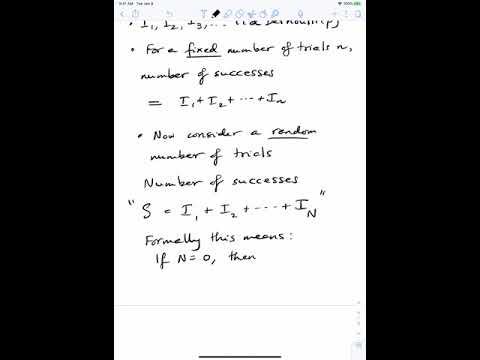 • I₁, I₂, I₃, ... iid Bernoulli(p)
• For a fixed number of trials n,
number of successes
= I₁ + I₂ + ... + Iₙ
• Now consider a random
number of trials
Number of successes
"S = I₁ + I₂ + ... + I_N"
Formally this means:
If N = 0, then